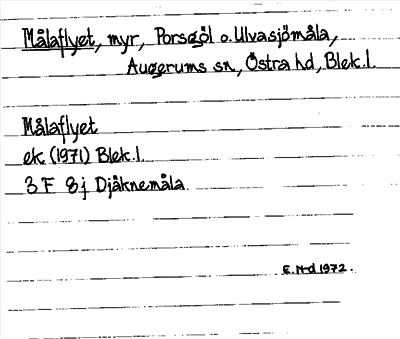 Målaflyet, myr, Porsgöl o. Ulvasjömåla,
Augerums sn, Östra hd, Blek.l.
Målaflyet
ek. (1971) Blek.l.
3 F 8j Djäknemåla
E. N-d 1972.